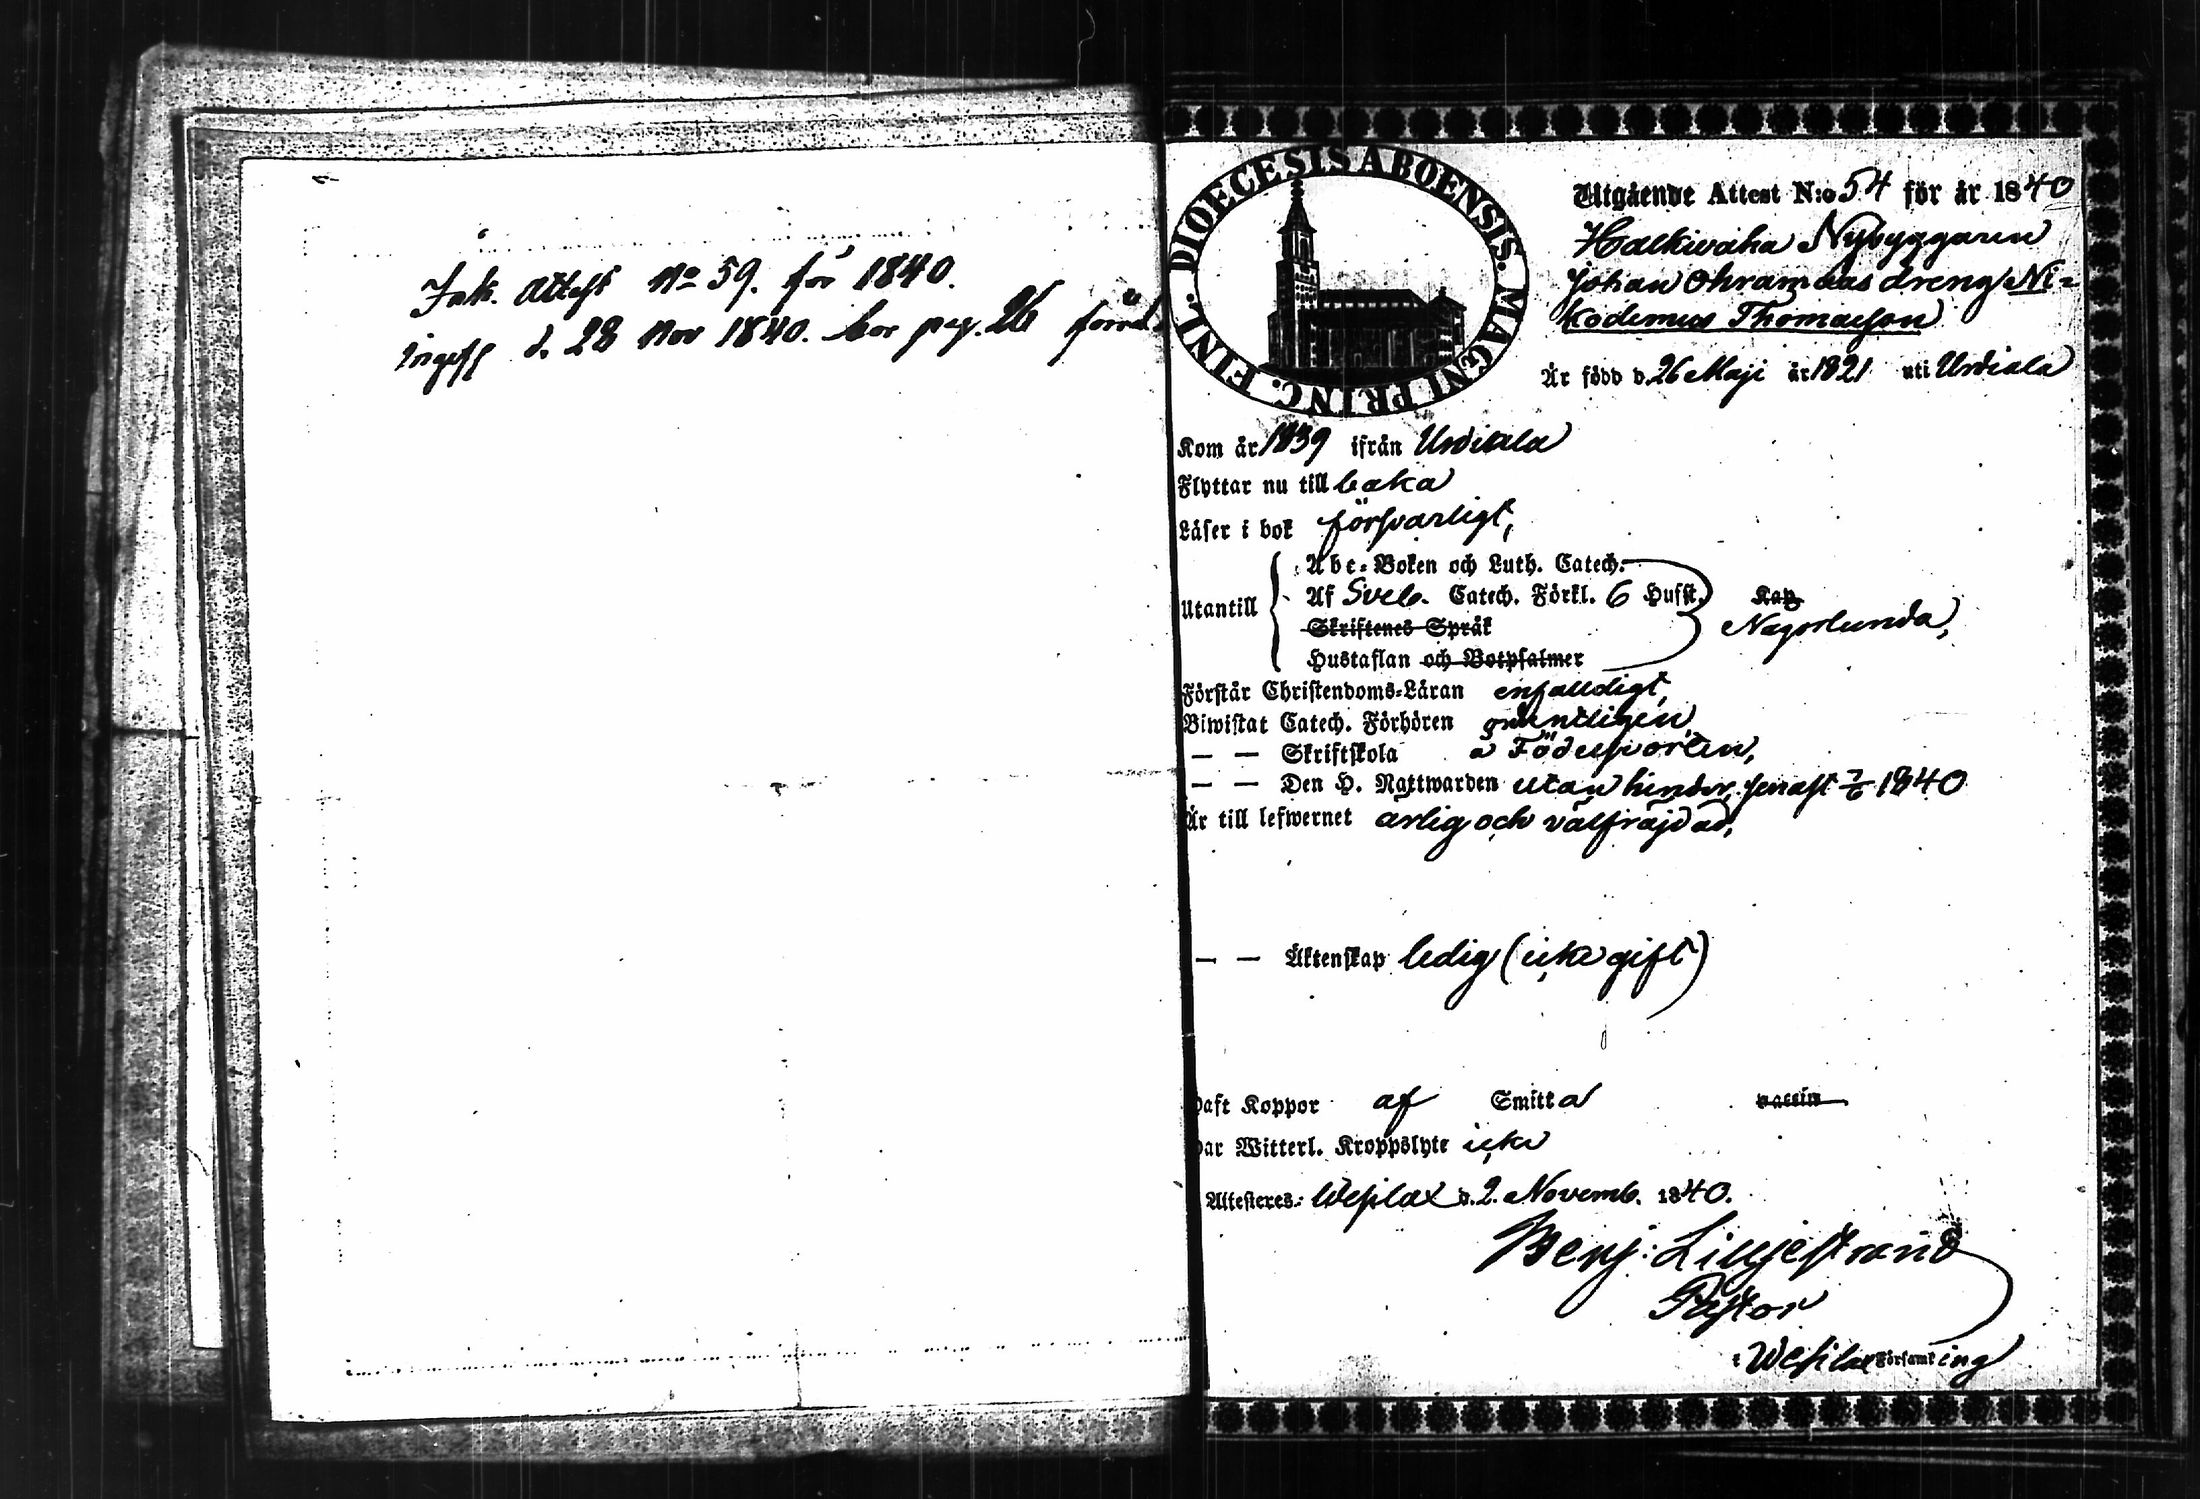 Ink. Attest No 59. för 1840.
d. 28 Nov 1840. bor pag. 26
DIOECESIS ABOENSIS. MAGNI PRINC. FINL.
Utgående Attest N:o 54 för år 1840
Halkivaha Nybyggaren
Johan Ohramaas dreng Ni-
kodemus Thomasson
Är född d. 26 Maji år 1821 uti Urdiala
Kom år 1839 ifrån Urdiala
Flyttar nu till baka
Läser i bok försvarligt,
Utantill
Abc-Boken och Luth. Catech.
Af Sveb. Catech. Förkl. 6 Hufst.
Skriftenes Språk
Hustaflan och Botpsalmer
Nagorlunda,
Förstår Christendoms-Läran enfalldigt,
Biwistat Catech. Förhören ordentligen
— — Skriftskola å Födelseorten,
— — Den H. Nattwarden utan hinder, senast 7/6 1840
Är till lefwernet ärlig och välfräjdad,
— — Äktenskap ledig (icke gift)
Haft Koppor af Smitta vaccin
Har Witterl. Kroppslyte icke
Attesteres: Wesilax d. 2. Novemb. 1840.
Benj: Liljestrand
Pastor
i Wesilax Församling